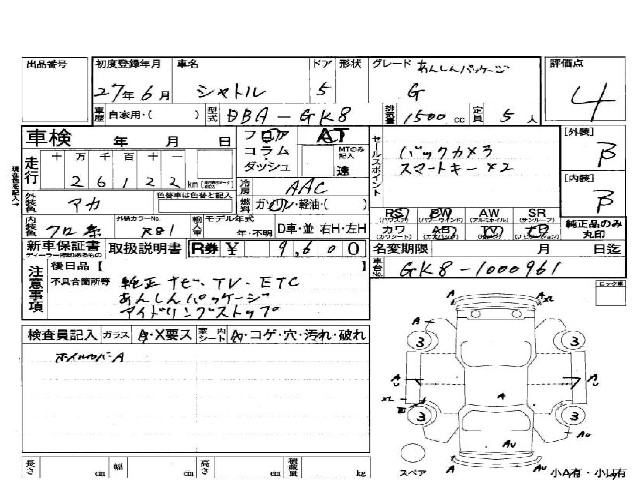 出品番号 初度登録年月 車名 ドア 形状 グレード あんしんパッケージ 評価点
27年6月 シャトル 5 G 4
車歴 自家用・( ) 型式 DBA-GK8 排気量 1500 cc 定員 5 人
車検 年 月 日 フロア AT セールスポイント [外装]
走行 十万千百十一 コラム MTのみ記入 バックカメラ B
26122 km ダッシュ 速 スマートキー×2
冷房 AAC [内装]
外装色 アカ 色替車は色替と記入 燃料 ガソリン・軽油・( ) B
PS BW AW SR
内装色 クロ系 外装カラーNo. R81 輸入車 モデル年式 年・不明 D車・並 右H・左H カワ AB TV 純正品のみ丸印
新車保証書 取扱説明書 R券 ¥ 9,600 名変期限 月 日迄
注意事項 後日品【 】 車台No. GK8-1000961
不具合箇所等 純正ナビ・TV・ETC
あんしんパッケージ
アイドリングストップ
検査員記入 ガラス A・X要ス 室内シート A・コゲ・穴・汚れ・破れ
ホイルカバーA
3 3
A A
A
3 3
AU AU
A
スペア 小A有・小U有
長さ cm 幅 cm 高さ cm 積載量 kg